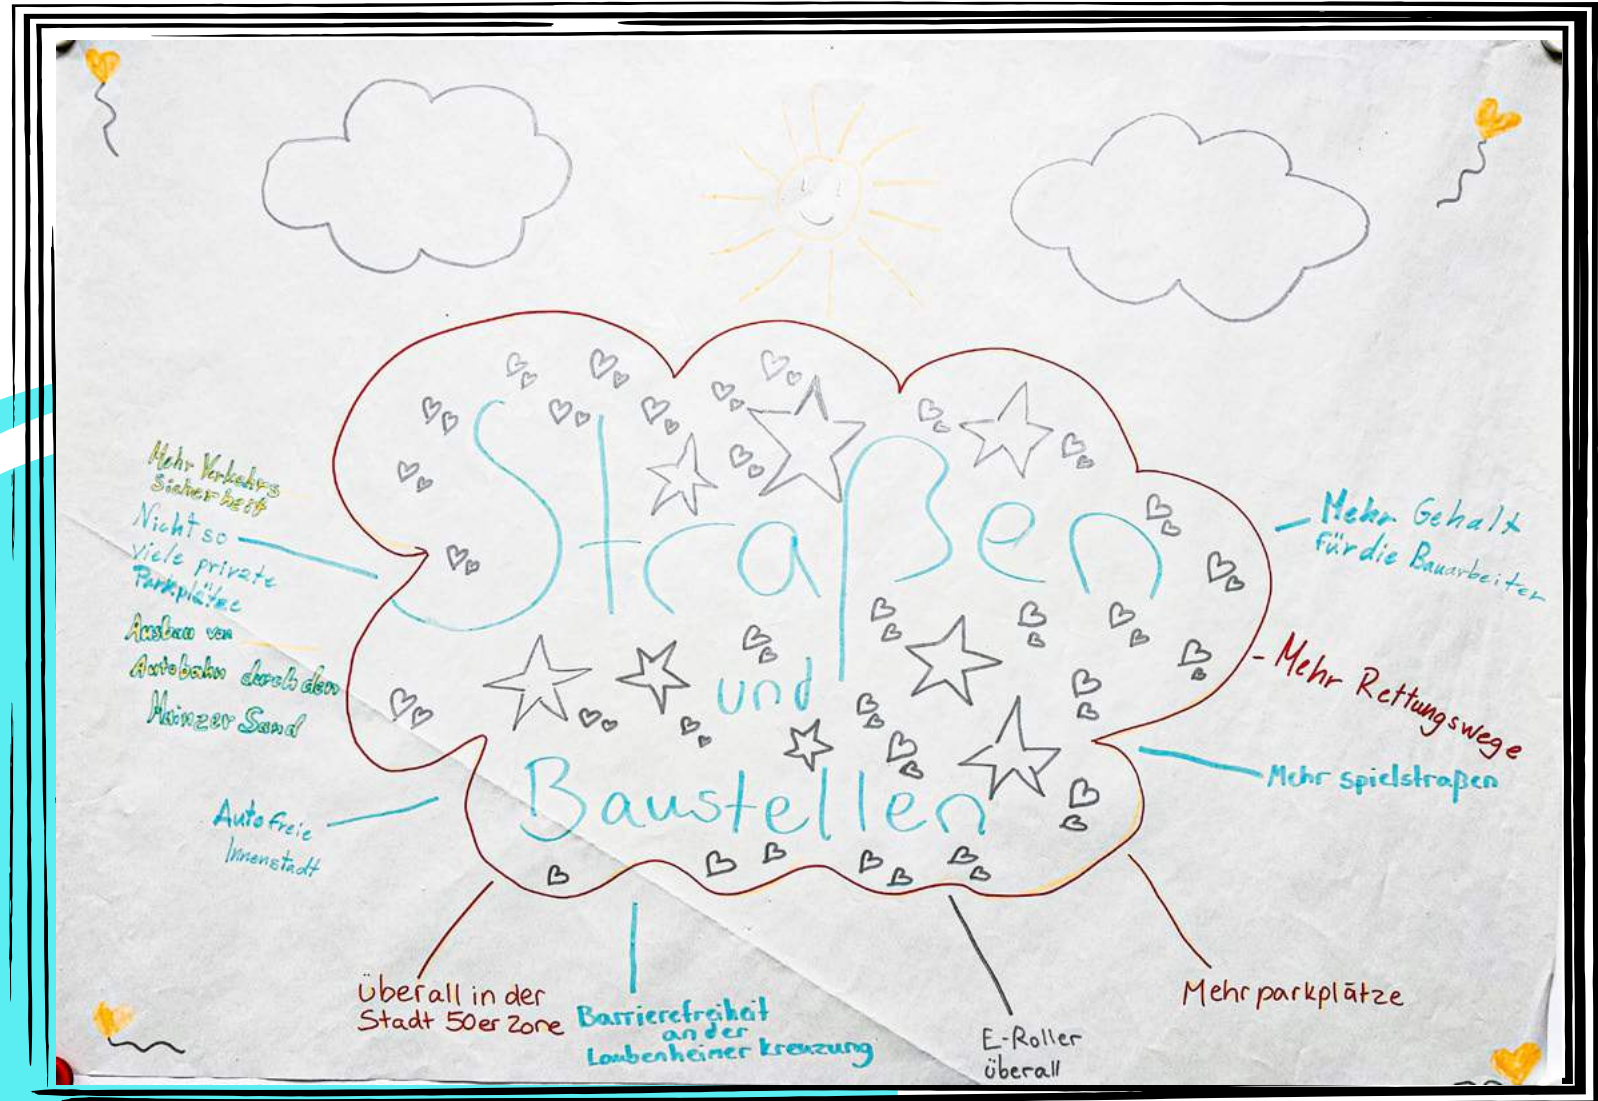 Straßen
und
Baustellen
Mehr Verkehrs
Sicherheit
Nicht so
viele private
Parkplätze
Ausbau von
Autobahn durch den
Mainzer Sand
Autofreie
Innenstadt
überall in der
Stadt 50er Zone
Barrierefreiheit
an der
Laubenheimer kreuzung
E-Roller
überall
Mehr parkplätze
Mehr spielstraßen
- Mehr Rettungswege
- Mehr Gehalt
für die Bauarbeiter